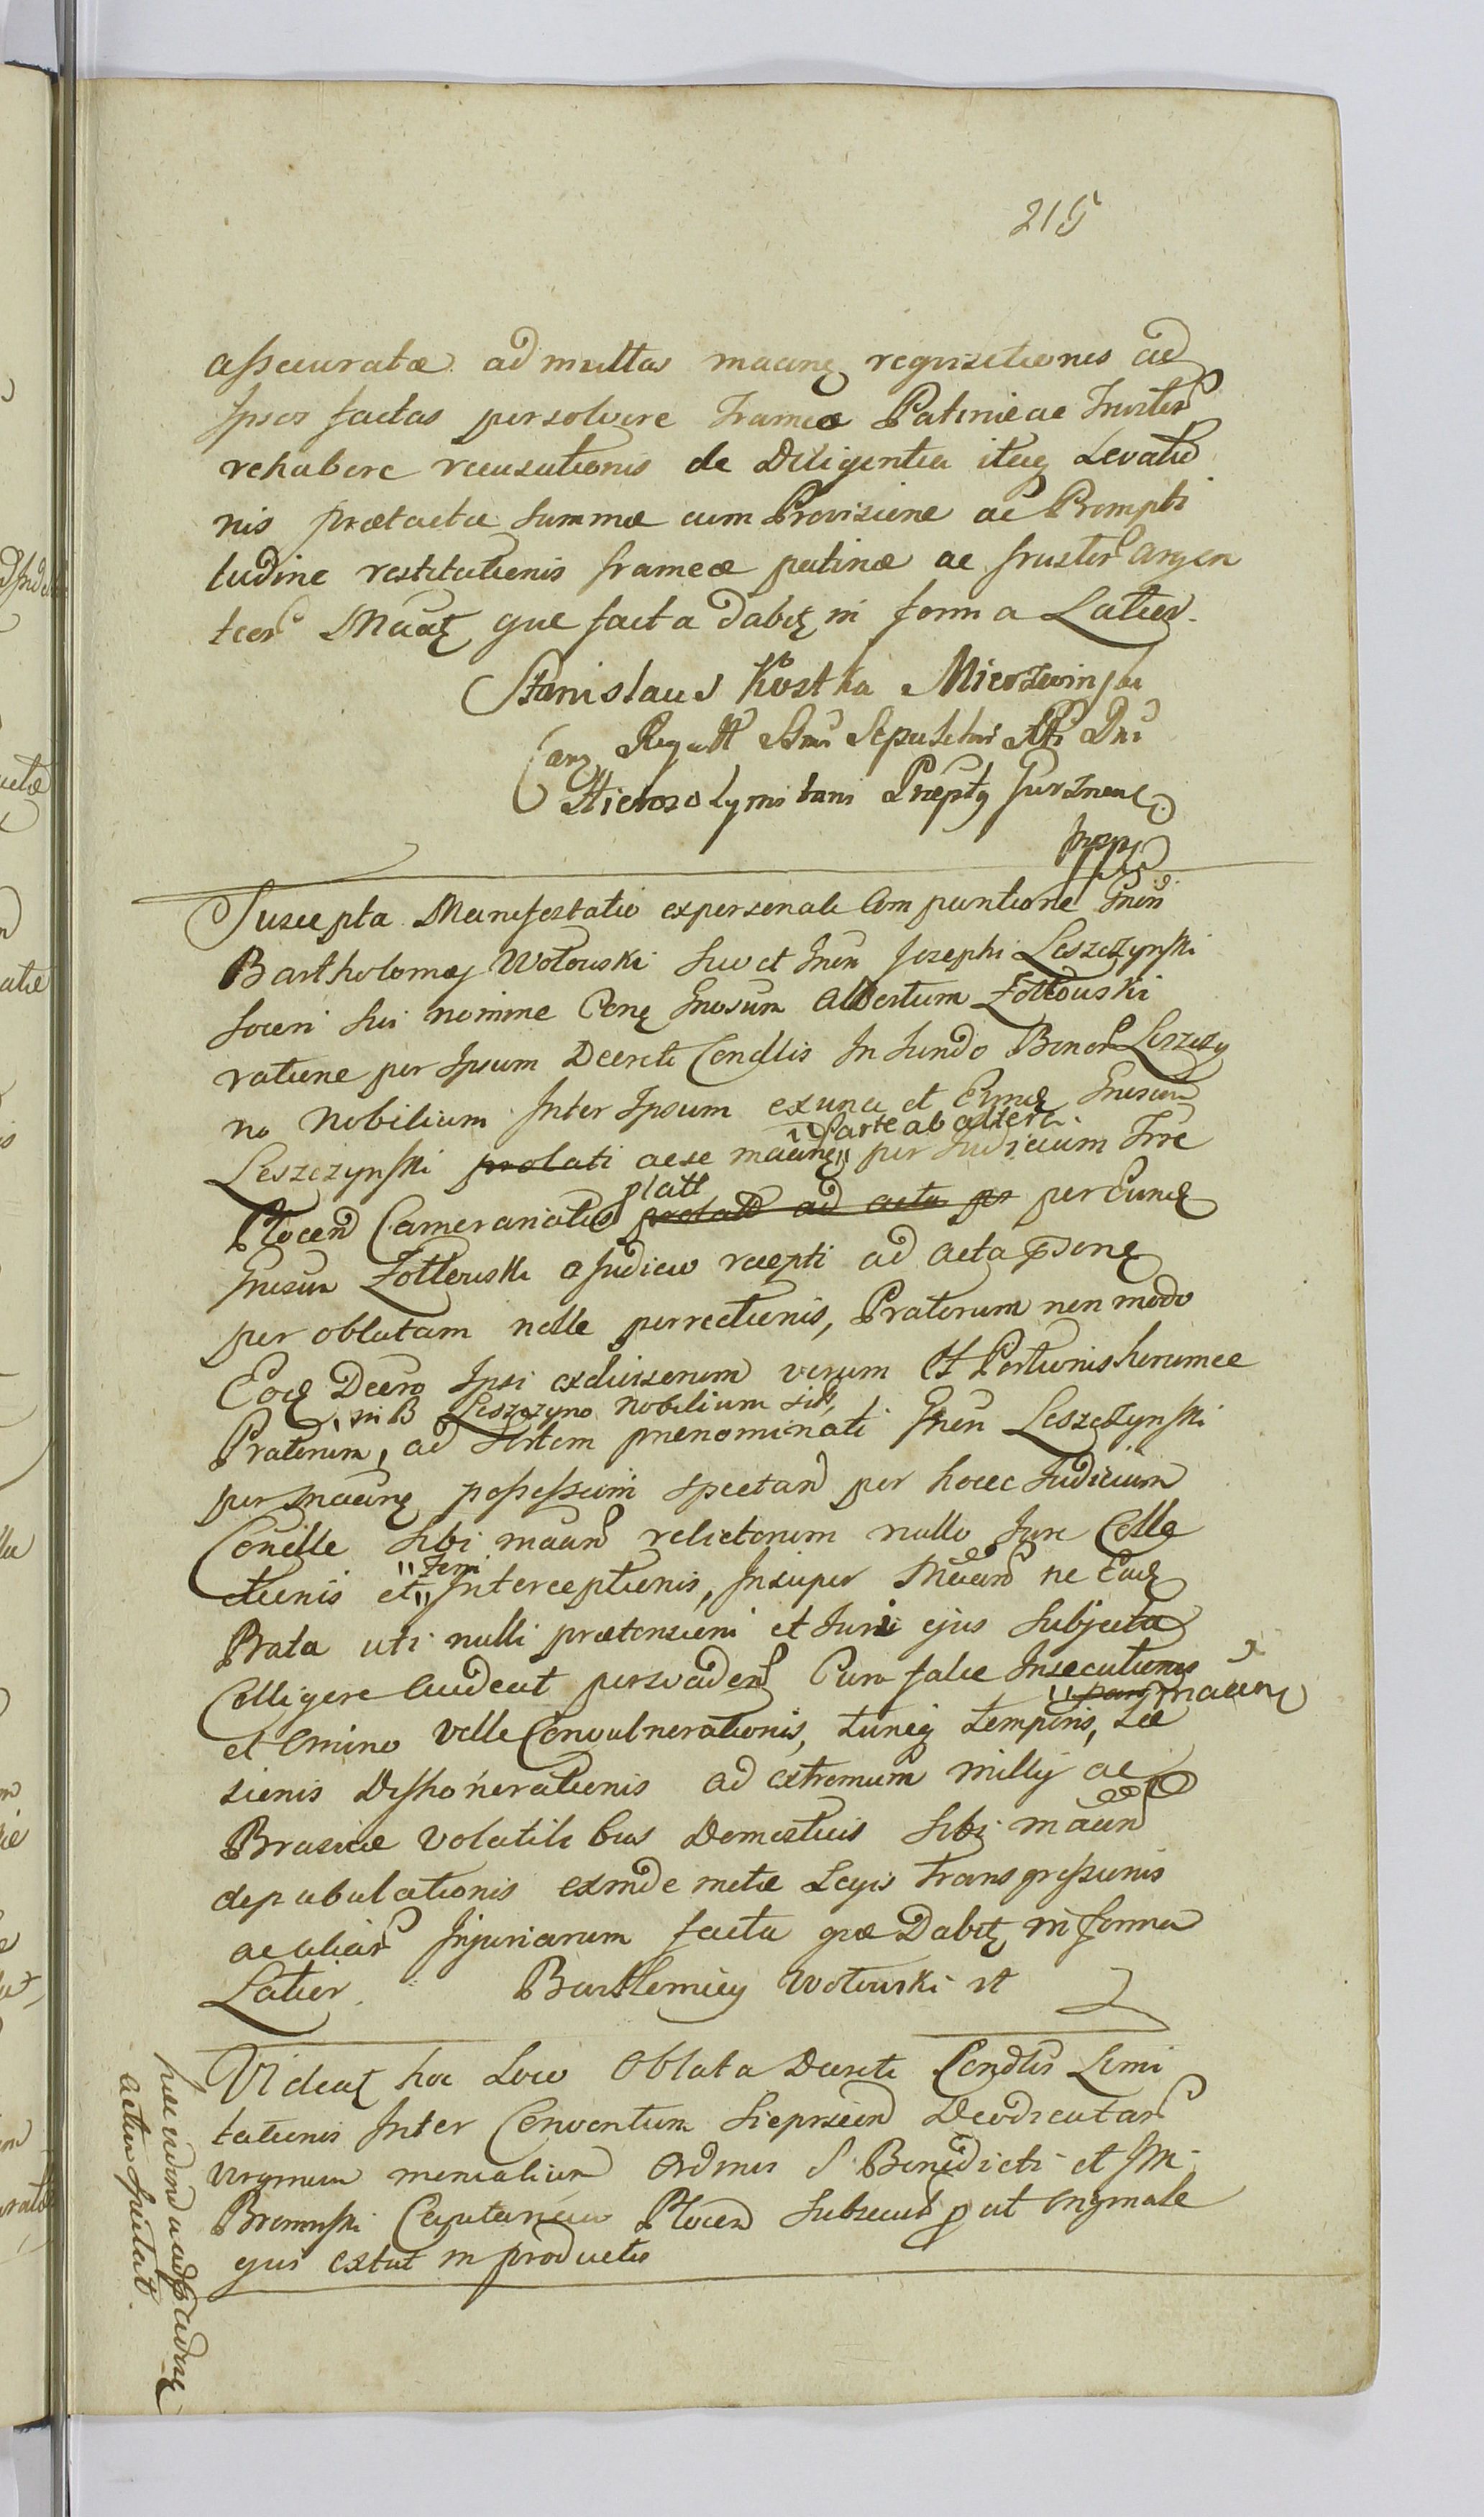 215
assecuratæ ad multas maanę requisitiones ad
Ipsos factas persolvere Frameæ Patinæ ac Frustor
rehabere recusationis de Diligentia itaq Levatio
nis prætactæ summæ cum Provisione ac Prompti
tudine restitutionis frameæ patinæ ac frustor argen
teor Maatę que facta dabitę in forma Latior.
Stanislaus Kostka Mierzwinski
Can Regull Sepulchri Dni
Hierosolymitani Præpts
mpp
Suscepta Manifestatio ex personali Compuntione Gnesi
Bartholomæj Wołowski suo et Gnesi Josephi Leszczynski
soceri sui nomine Conę Gnosum Albertum Zołtowski
ratione per Ipsum Decreti Condlis In fundo Bonor Leszczy
no Nobilium Inter Ipsum ex una et Eundę Gnosum
Parte ab altera
Leszczynski prolati acse maanę per Judicium Trre
platt
Plocen Cameranialis prolati ad acta per per Eundę
Gnosum Zołtowski a Judicio recepti ad acta psonę
per oblatam nolle porrectionis, Pratorum non modo
Eodę Decro Ipsi exdivisorum verum Et Portionis horumce
in B Leszczyno Nobilium sit,
Pratorum, ad Sortem prænominati Gnesi Leszczynski
per maanę possessioni spectan per hocce Judicium
Condlle sibi maan relictorum nullo Jure Colle
Feni
ctionis et Interceptionis, Insuper Maan ne Eadę
Prata uti nulli prætensioni et Juri ejus subjecta
Colligere audeat persvaden Cum falce Insecutionis
maanę
et Omino Velle Convulnerationis, tuncq temporis, Læ
sionis Dishonerationis ad extremum milly ac
Brasicæ Volatilibus Domesticis sibi maan
depabulationis exinde metæ Legis transgressionis
ac aliar Injuriarum facta quæ Dabitę in forma
Latior. Bartlemiey Wołowski
Videatę hoc Loco Oblata Decreti Condlis Limi
tationis Inter Conventum Sieprscen Deodicatar
virginum monialium Ordinis S Benedicti et Im
Bromirski Capitaneum Plocen Subsecut put originale
ejus extat in productis
actum spectat.